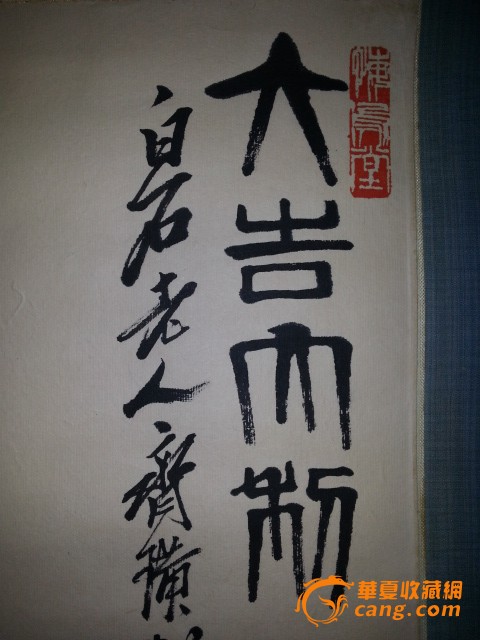 悔烏堂
大吉大利
白石老人齊璜
華夏收藏網
cang.com